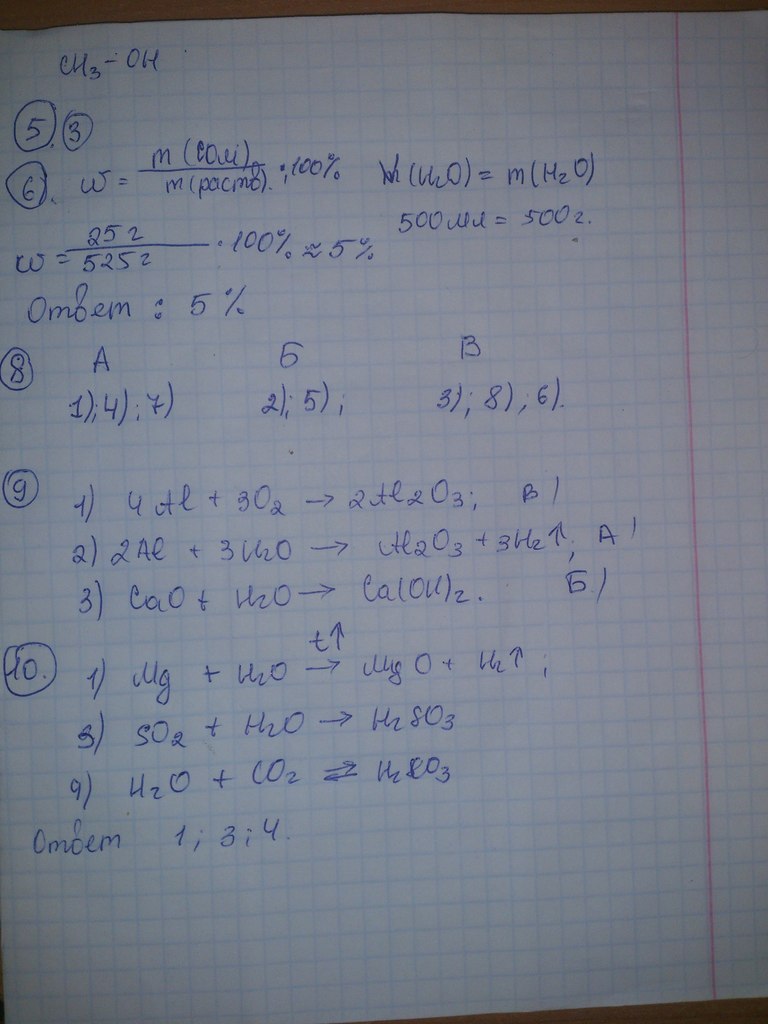 CH3 – OH
5. 3
6. w = m (соли) / m (раств). · 100% V(H2O) = m(H2O)
500 мл = 500 г.
w = 25 г / 525 г · 100% ≈ 5 %
Ответ : 5 %
8 А Б В
1); 4); 7) 2); 5); 3); 8); 6).
9 1) 4Al + 3O2 → 2Al2O3; В)
2) 2Al + 3H2O → Al2O3 + 3H2↑; А)
3) CaO + H2O → Ca(OH)2. Б)
t↑
10. 1) Mg + H2O → MgO + H2↑ ;
3) SO2 + H2O → H2SO3
4) H2O + CO2 ⇄ H2CO3
Ответ 1; 3; 4.